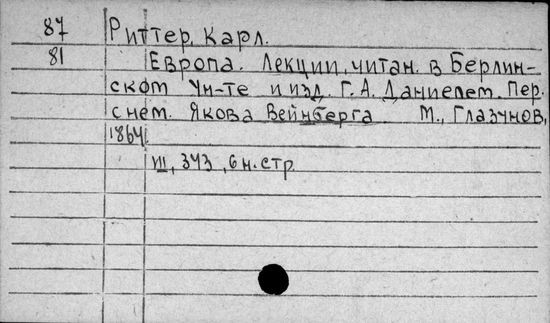 87 Риттер, Карл.
81 Европа. Лекции, читан. в Берлин-
ском Ун-те и изд. Г. А. Даниелем. Пер.
с нем. Якова Вейнберга М., Глазунов,
1864.
III, 343, 6 н. стр.